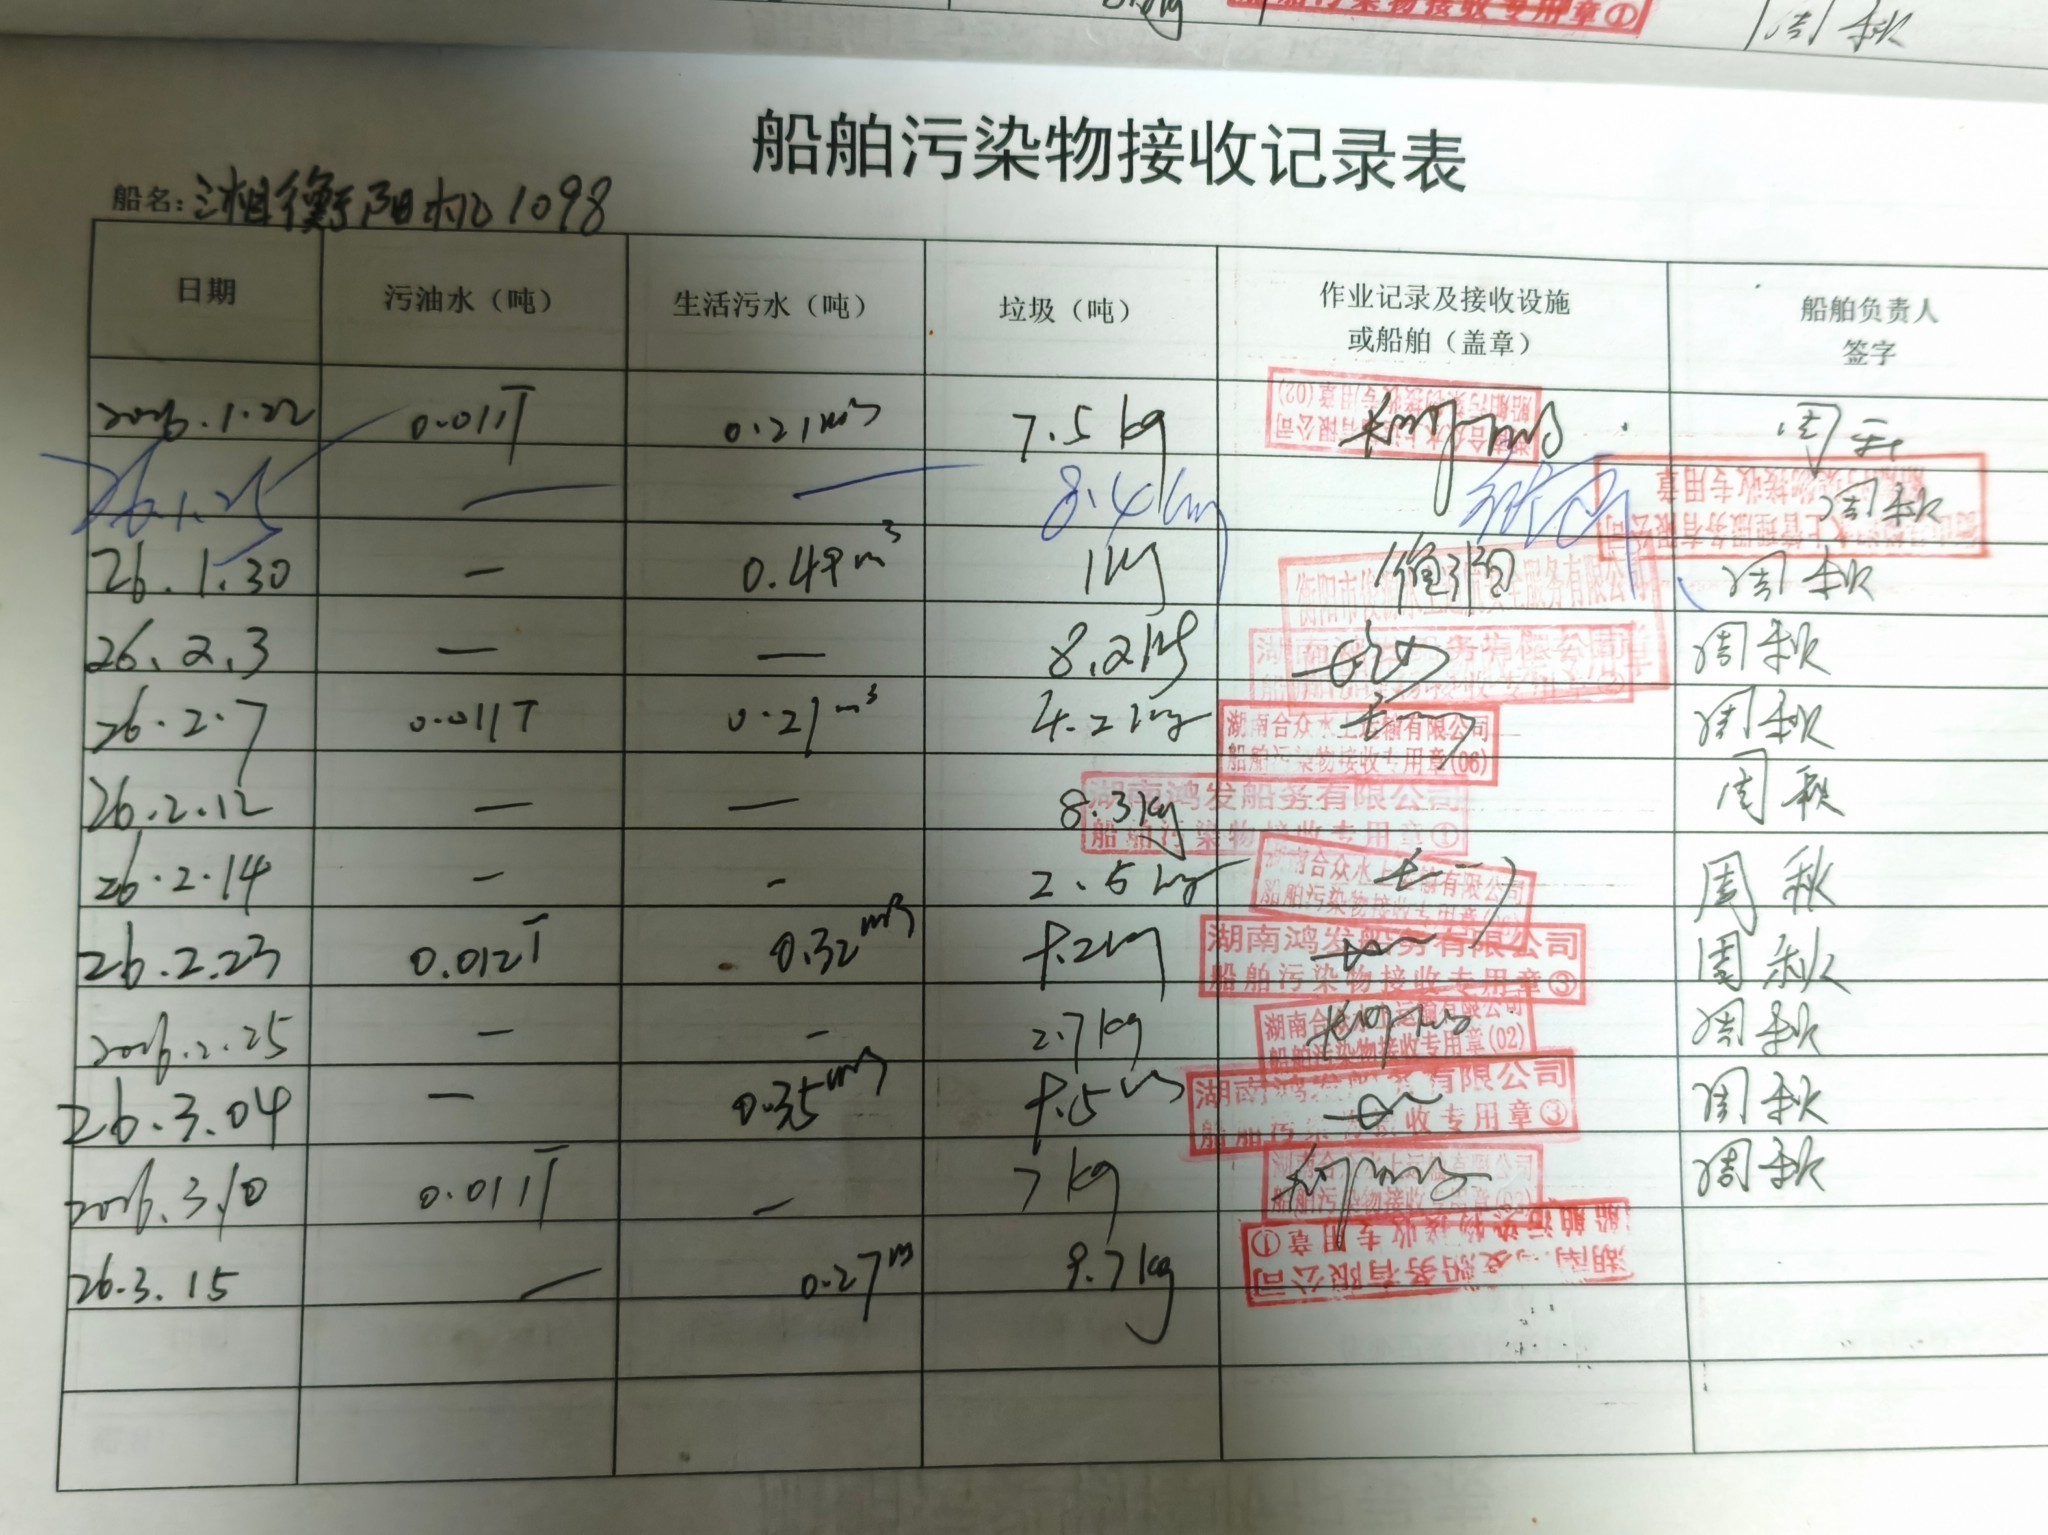 船舶污染物接收专用章①
周秋
船舶污染物接收记录表
船名: 湘衡阳机1098
日期 污油水（吨） 生活污水（吨） 垃圾（吨） 作业记录及接收设施或船舶（盖章） 船舶负责人签字
2026.1.22 0.011T 0.21m³ 7.5kg 船舶污染物接收专用章(02) 周秋
26.1.25 — — 8.4kg 船舶污染物接收专用章 周秋
26.1.30 — 0.49m³ 1kg 周秋
26.2.3 — — 8.2kg 周秋
26.2.7 0.011T 0.21m³ 4.2kg 湖南合众水上运输有限公司 船舶污染物接收专用章(06) 周秋
26.2.12 — — 8.3kg 湖南鸿发船务有限公司 船舶污染物接收专用章① 周秋
26.2.14 - - 2.5kg 湖南合众水上运输有限公司 船舶污染物接收专用章 周秋
26.2.23 0.012T 0.32m³ 湖南鸿发船务有限公司 船舶污染物接收专用章③ 周秋
2026.2.25 - - 2.7kg 湖南合众水上运输有限公司 船舶污染物接收专用章(02) 周秋
26.3.04 — 0.35m³ 湖南鸿发船务有限公司 船舶污染物接收专用章③ 周秋
2026.3.10 0.011T — 7kg 湖南合众水上运输有限公司 船舶污染物接收专用章(02) 周秋
26.3.15 — 0.27m 9.7kg 湖南鸿发船务有限公司 船舶污染物接收专用章①